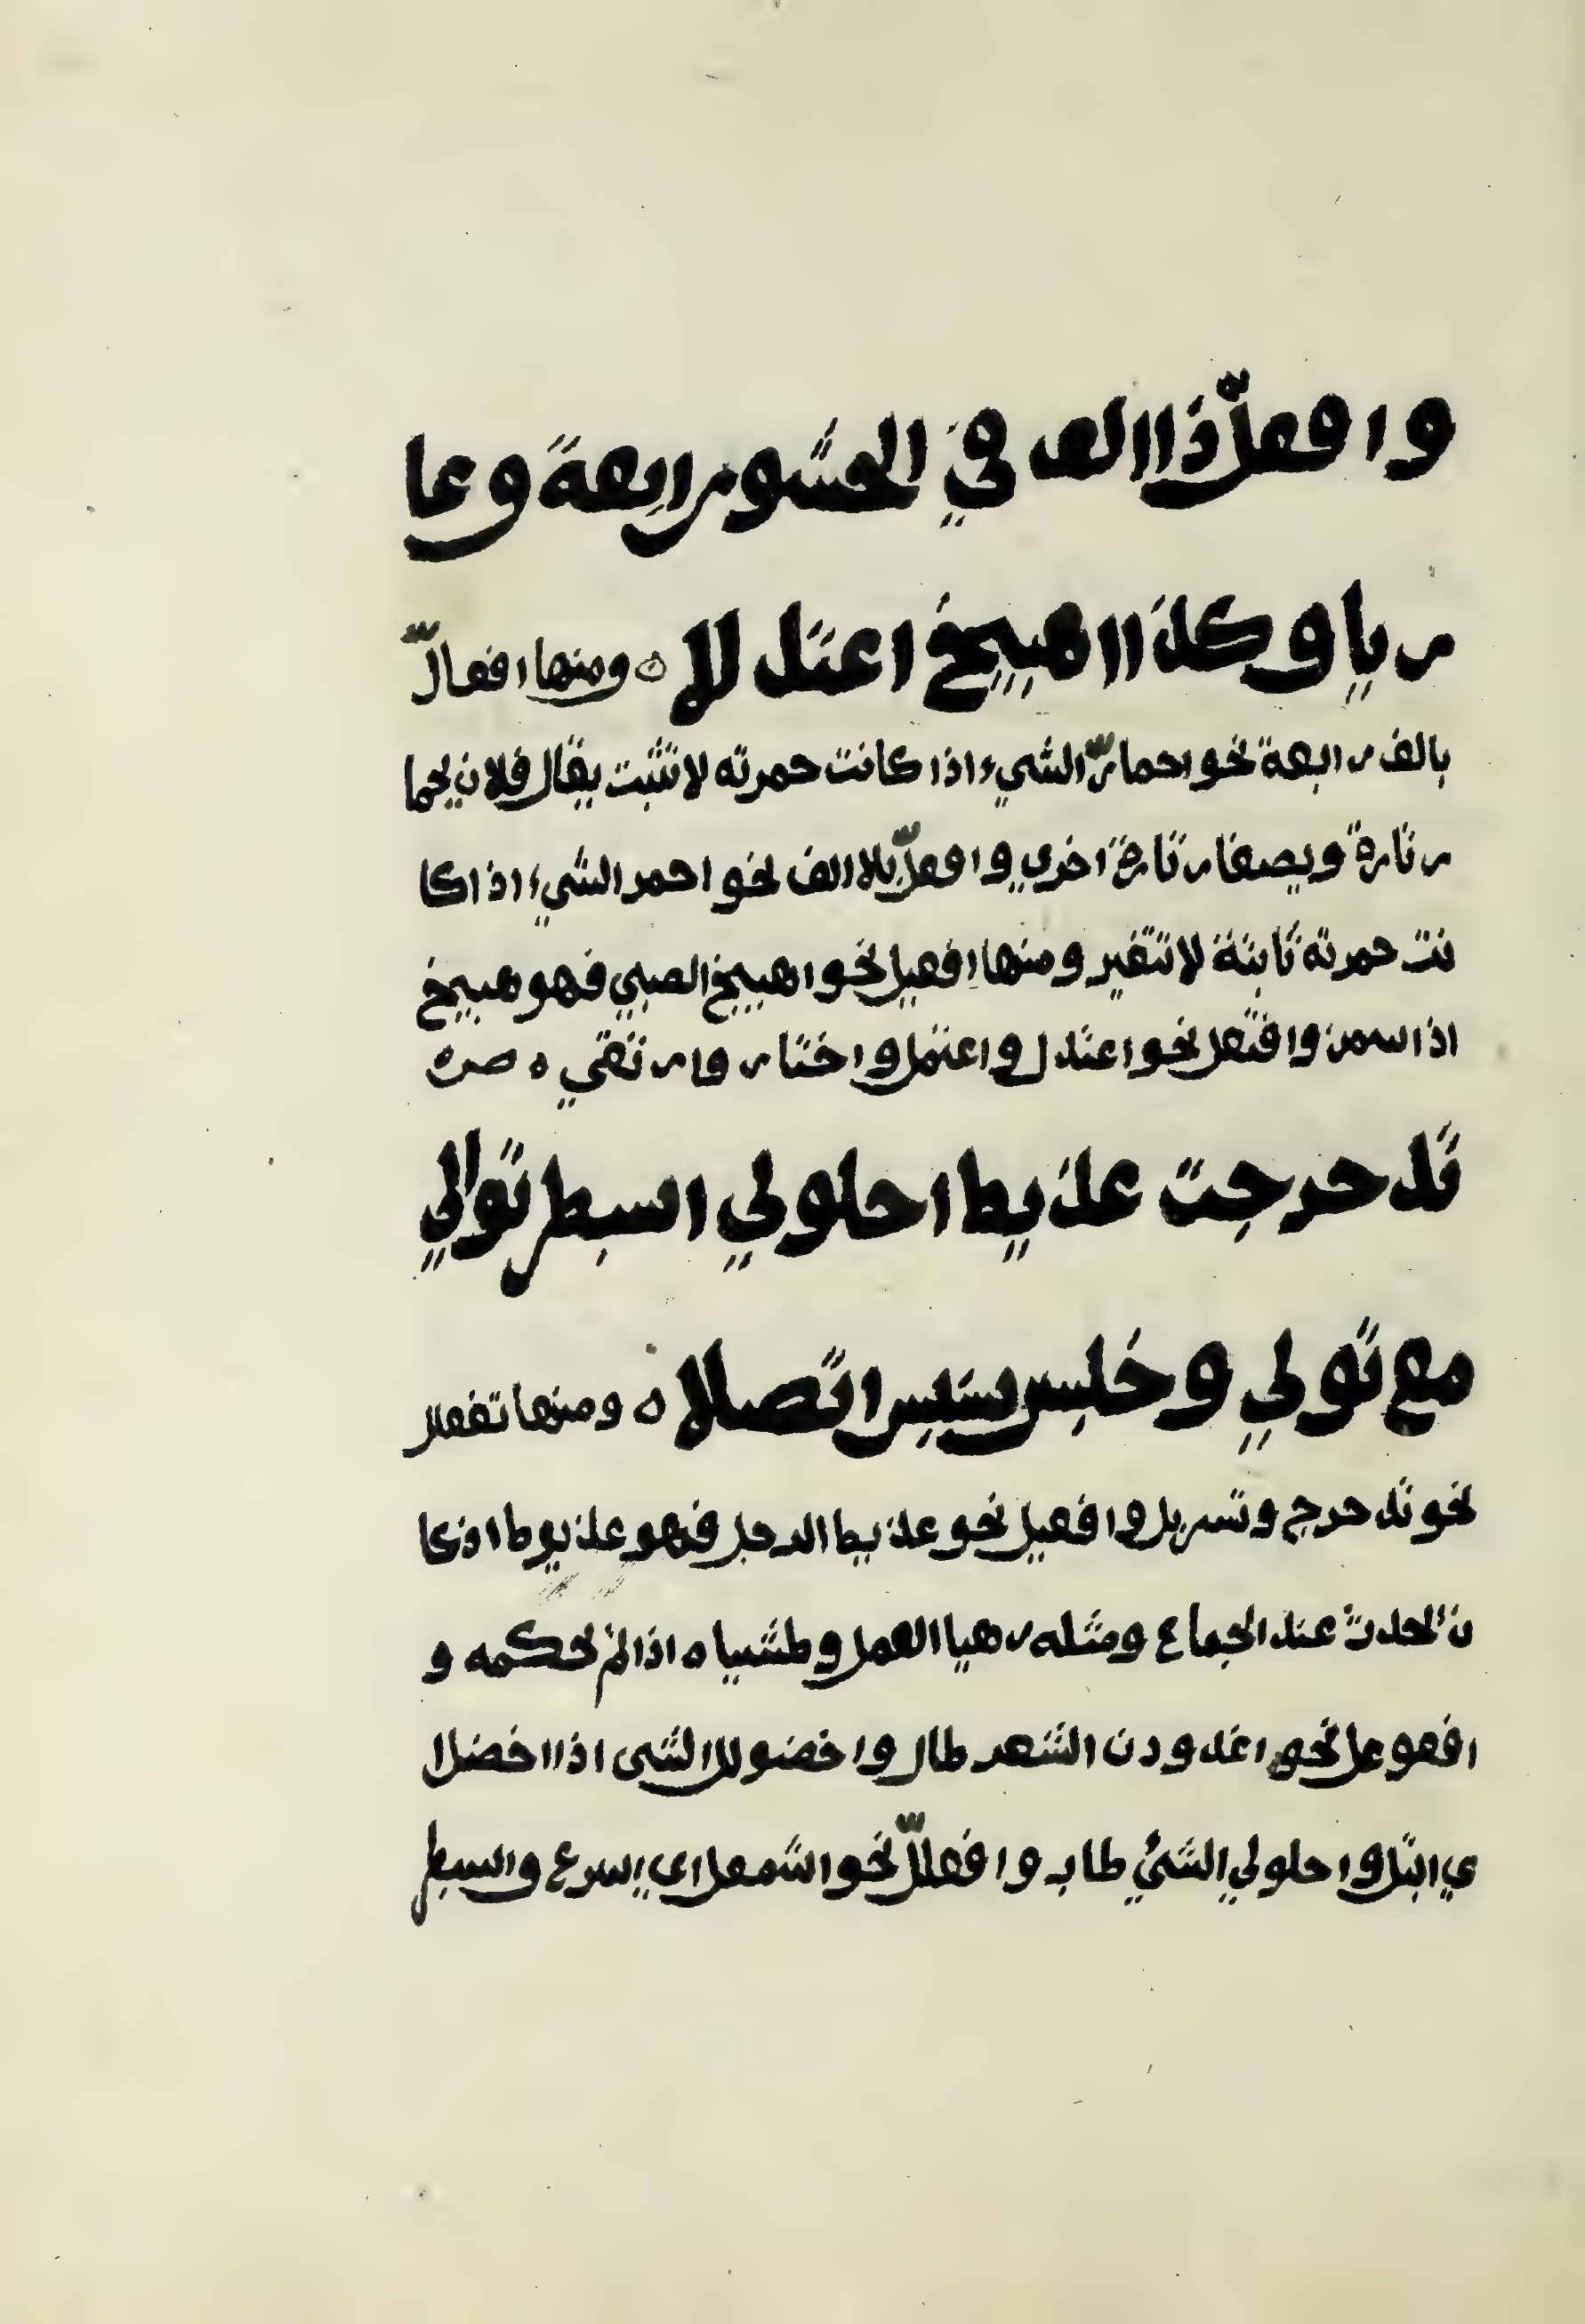 وافعلّ ذا الف في الحشو رابعة وعا
ر يا وكذا اهبيخ اعتدلا ه ومنها افعالّ
بالف رابعة نحو احمارّ الشيء اذا كانت حمرته لا تثبت يقال فلان يحما
ر تارة ويصفار تارة اخري وافعلّ بلا الف نحو احمر الشيء اذا كا
نت حمرته ثابتة لا تتغير ومنها افعيل نحو اهبيخ الصبي فهو هبيخ
اذا سمن وافتعل نحو اعتدل واعتمل واختار وارتقي ه صره
تدحرجت عذيط احلولي اسبطر توالي
مع تولي وخلبس سنبس اتصلا ه ومنها تفعلل
نحو تدحرج وتسربل وافعيل نحو عذيط الرجل فهو عذيوط اذ كا
ن يحدث عند الجماع ومثله رهيا العمل وطشياه اذا لم يحكمه و
افعوعل نحو اغدودن الشعر طال واخضوضل الشى اذا اخضل ا
ي ابتل واحلولي الشئ طاب وافعللّ نحو اشمعل اي اسرع واسبطر